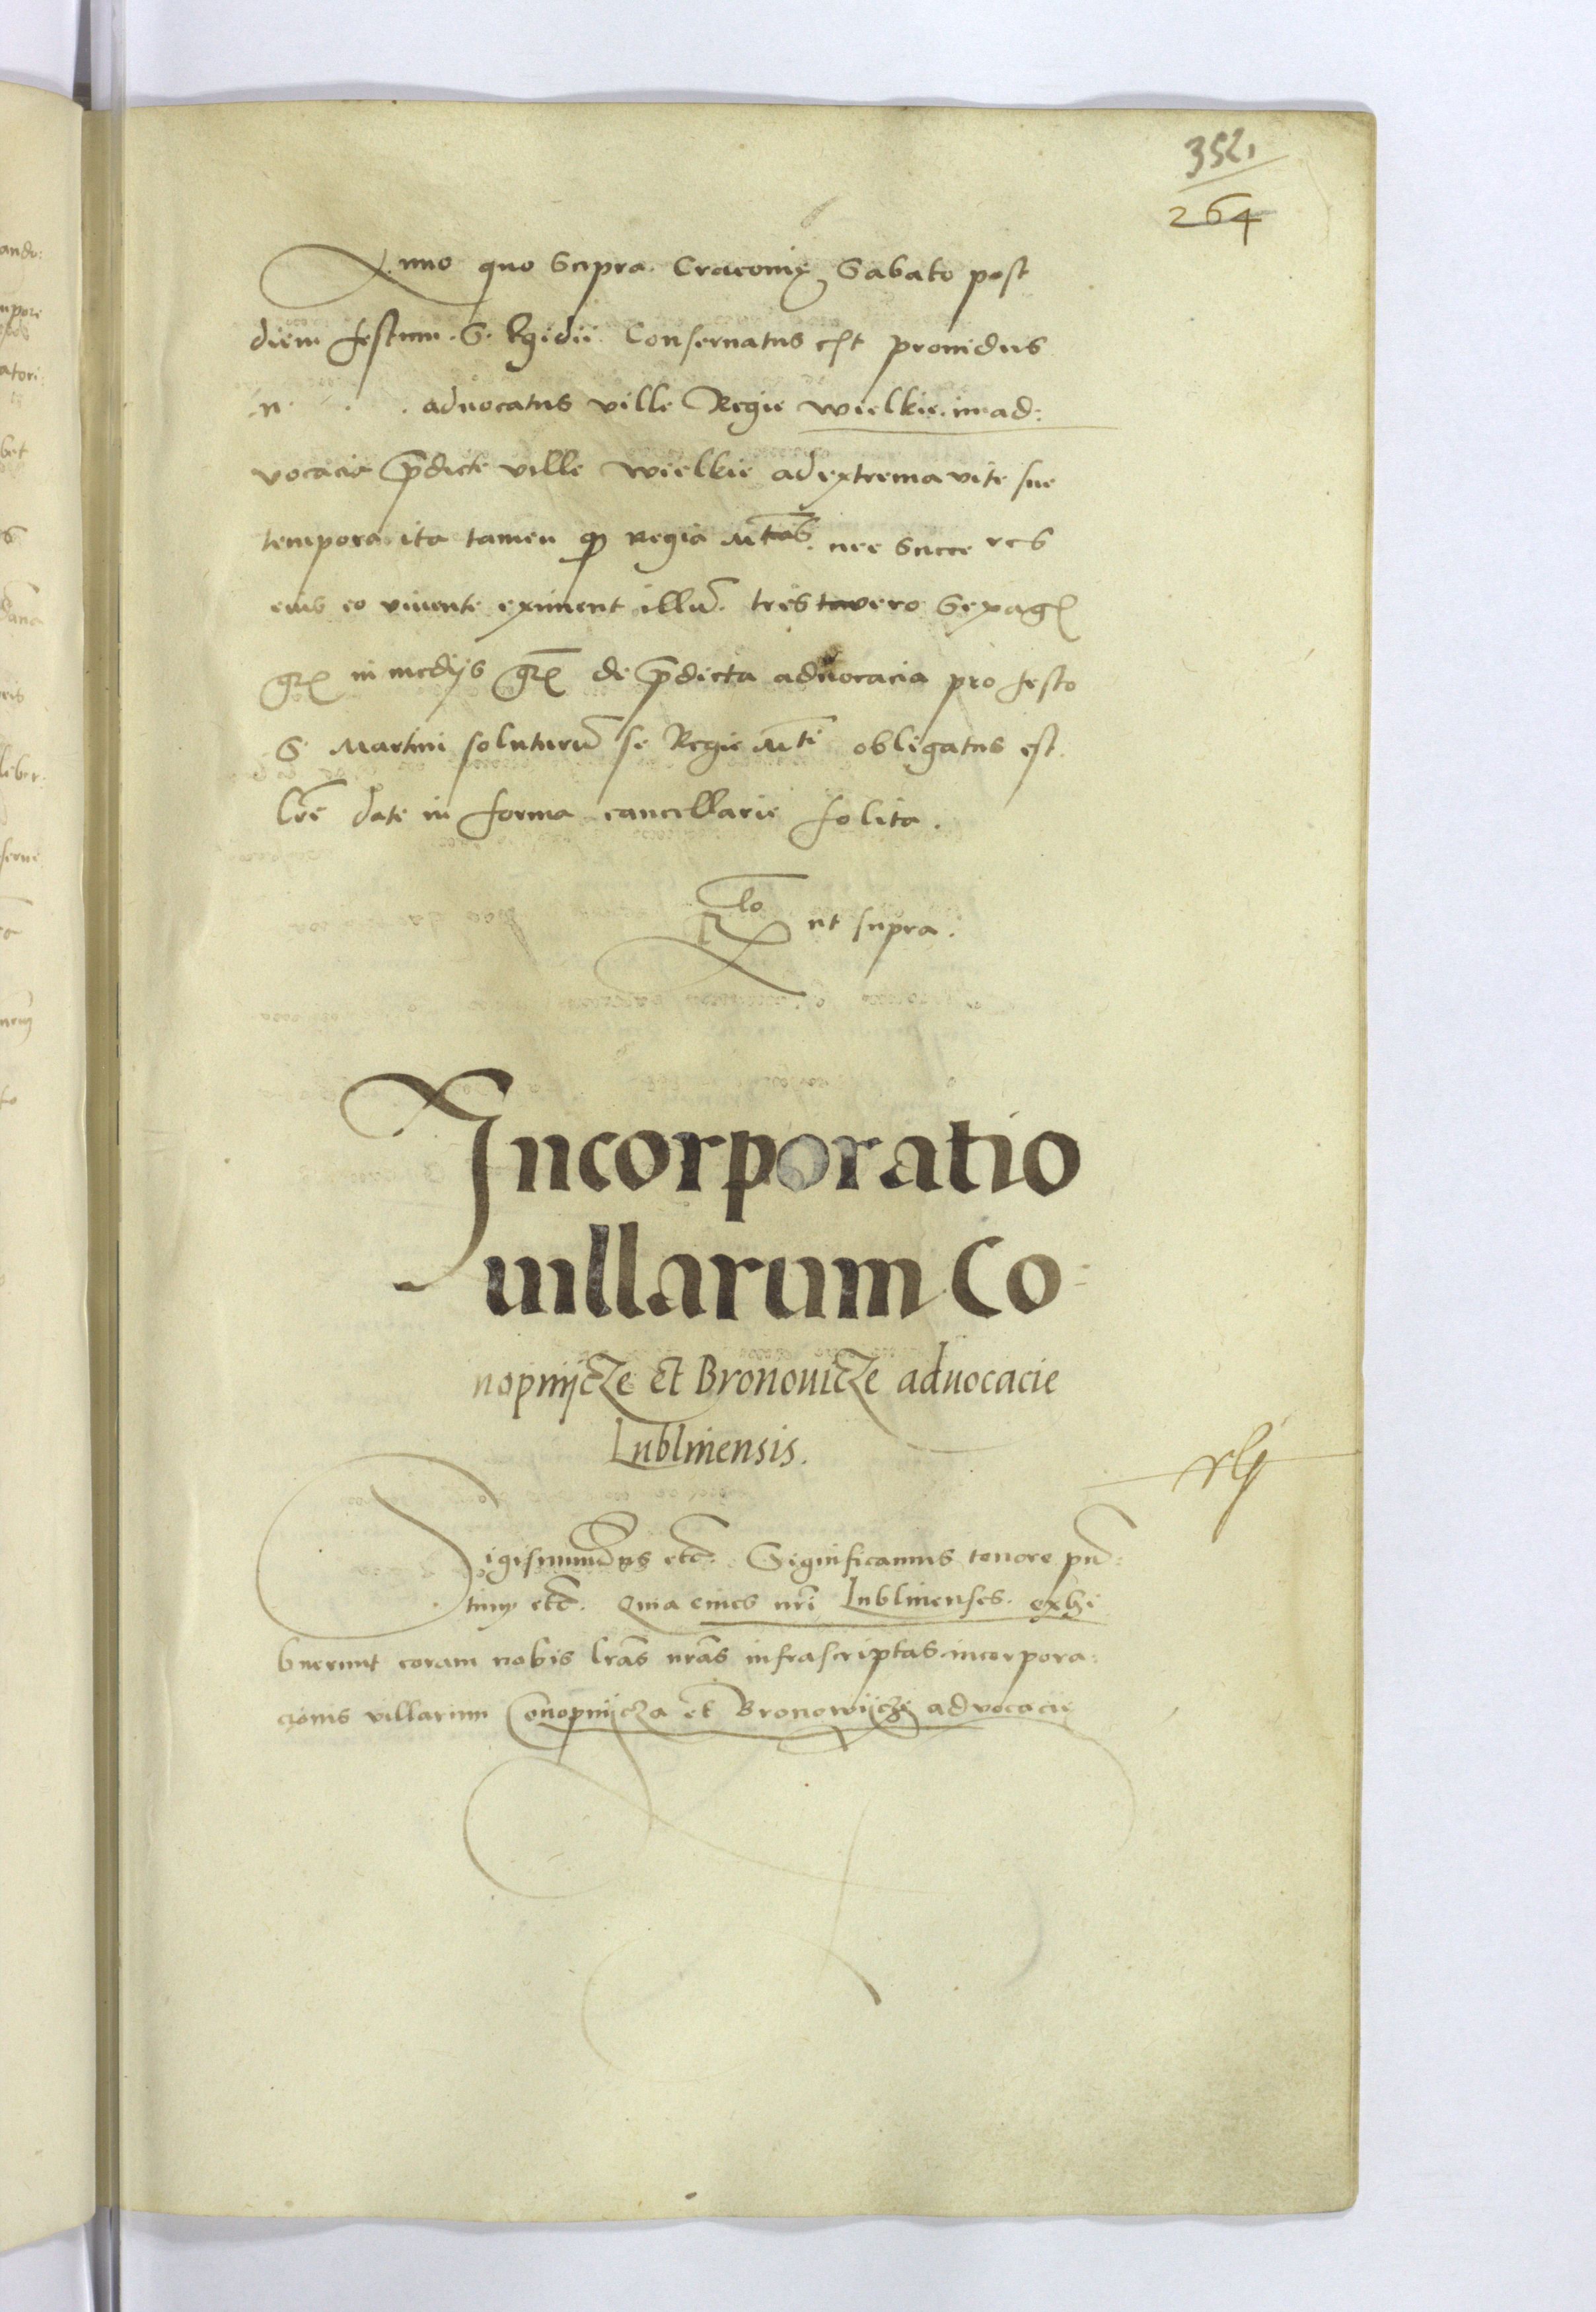 352,
264
Anno quo Supra. Cracovię Sabato post
diem festum. S. Egidii Conservatus est providus
n. . . advocatus ville Regie wielkie. in ad:
vocacia p̄dicte ville wielkie ad extrema vite sue
tempora ita tamen ꝙ regia Mtas. nec Succe res
eius eo vivente eximent illū. tres vero Sexag
gr in medijs gr̄ de p̄dicta advocacia pro festo
S. Martini soluturū se Regie Mti obligatus est.
Lrē date in forma cancellarie solita.
Rlo ut supra.
Incorporatio
uillarum Co-
nopnijcze et Bronouicze aduocacie
Lublinensis.
Sigismundus etc. Significamus tenore pn̄:
tium etc. Quia cives nr̄i Lublinenses. exhi
buerunt coram nobis lrās nrās infrascriptas incorpora:
cionis villarum Conopnijcza et Bronowijcze advocacie